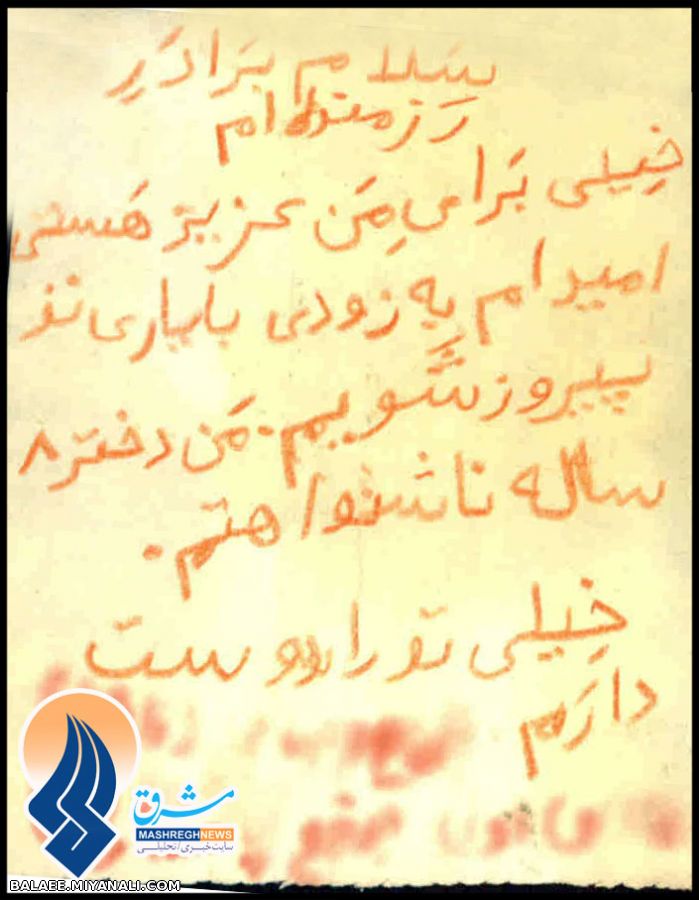 سَلام بَرادَرِ
رَزمنده ام
خِیلی بَرایِ مَن عزیز هَستی
امیدام به زودی بایاری تو
پیروز شَویم. مَن دختر ۸
ساله ناشنوا هتم.
خِیلی تو را دوست
دارَم
مشرق
MASHREGHNEWS
سایت خبری/تحلیلی
BALAEE.MIYANALI.COM